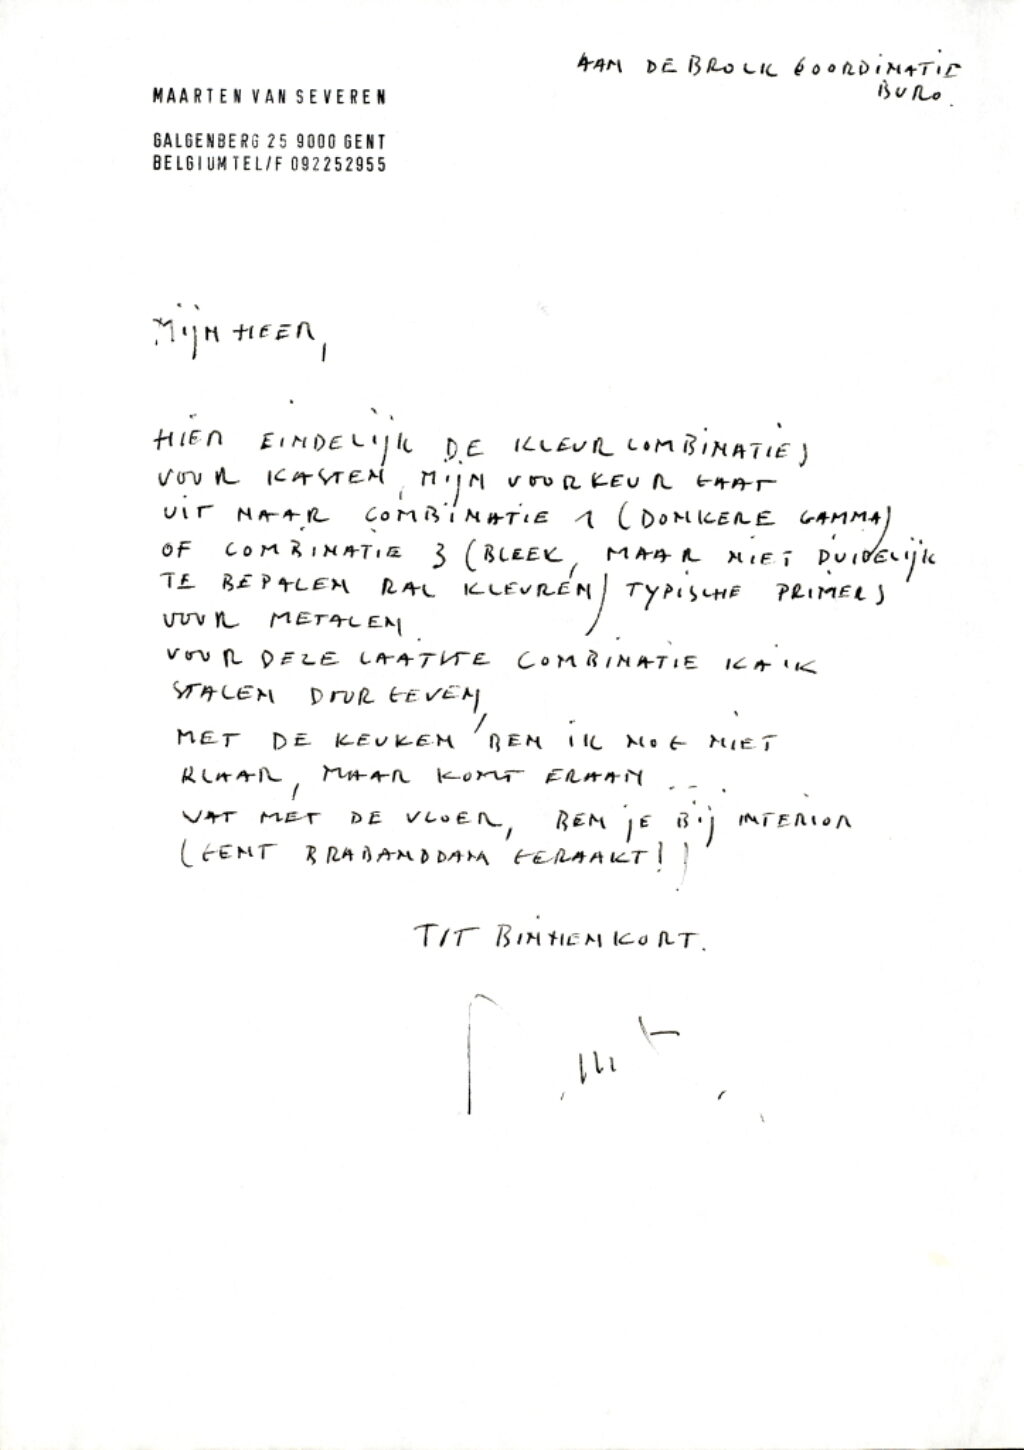 AAN DEBROCK COORDINATIE
BURO.
MAARTEN VAN SEVEREN
GALGENBERG 25 9000 GENT
BELGIUM TEL/F 092252955
MIJNHEER,
HIER EINDELIJK DE KLEURCOMBINATIES
VOOR KASTEN, MIJN VOORKEUR GAAT
UIT NAAR COMBINATIE 1 (DONKERE GAMMA)
OF COMBINATIE 3 (BLEEK, MAAR NIET DUIDELIJK
TE BEPALEN RAL KLEUREN) TYPISCHE PRIMERS
VOOR METALEN
VOOR DEZE LAATSTE COMBINATIE KA'IK
STALEN DOORGEVEN
MET DE KEUKEN BEN IK NOG NIET
KLAAR, MAAR KOMT ERAAN ...
WAT MET DE VLOER, BEN JE BIJ INTERIOR
(GENT BRABANDDAM GERAAKT!)
TOT BINNENKORT.